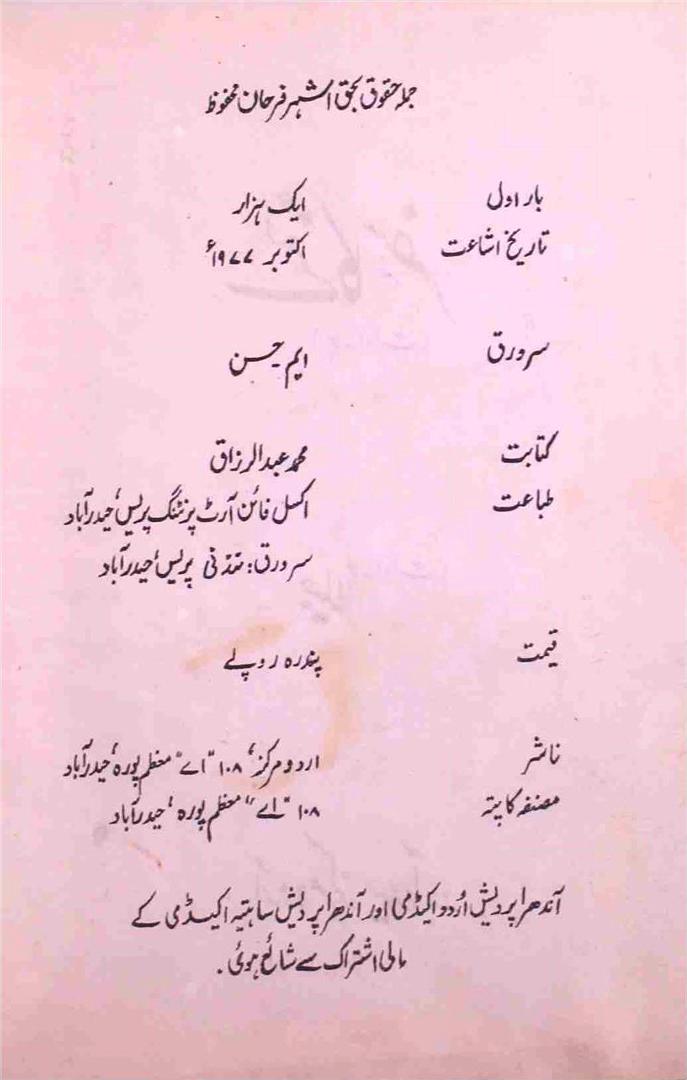 جملہ حقوق بحق اشہر فرحان محفوظ
بار اول ایک ہزار
تاریخ اشاعت اکتوبر ۱۹۷۷ء
سرورق ایم حسن
کتابت محمد عبدالرزاق
طباعت اکسل فائن آرٹ پرنٹنگ پریس، حیدرآباد
سرورق: پریس، حیدرآباد
قیمت پندرہ روپے
ناشر اردو مرکز، ۱۰۸ "اے" معظم پورہ، حیدرآباد
مصنفہ کا پتہ ۱۰۸ "اے" معظم پورہ، حیدرآباد
آندھرا پردیش اُردو اکیڈمی اور آندھرا پردیش ساہتیہ اکیڈمی کے
مالی اشتراک سے شائع ہوئی۔